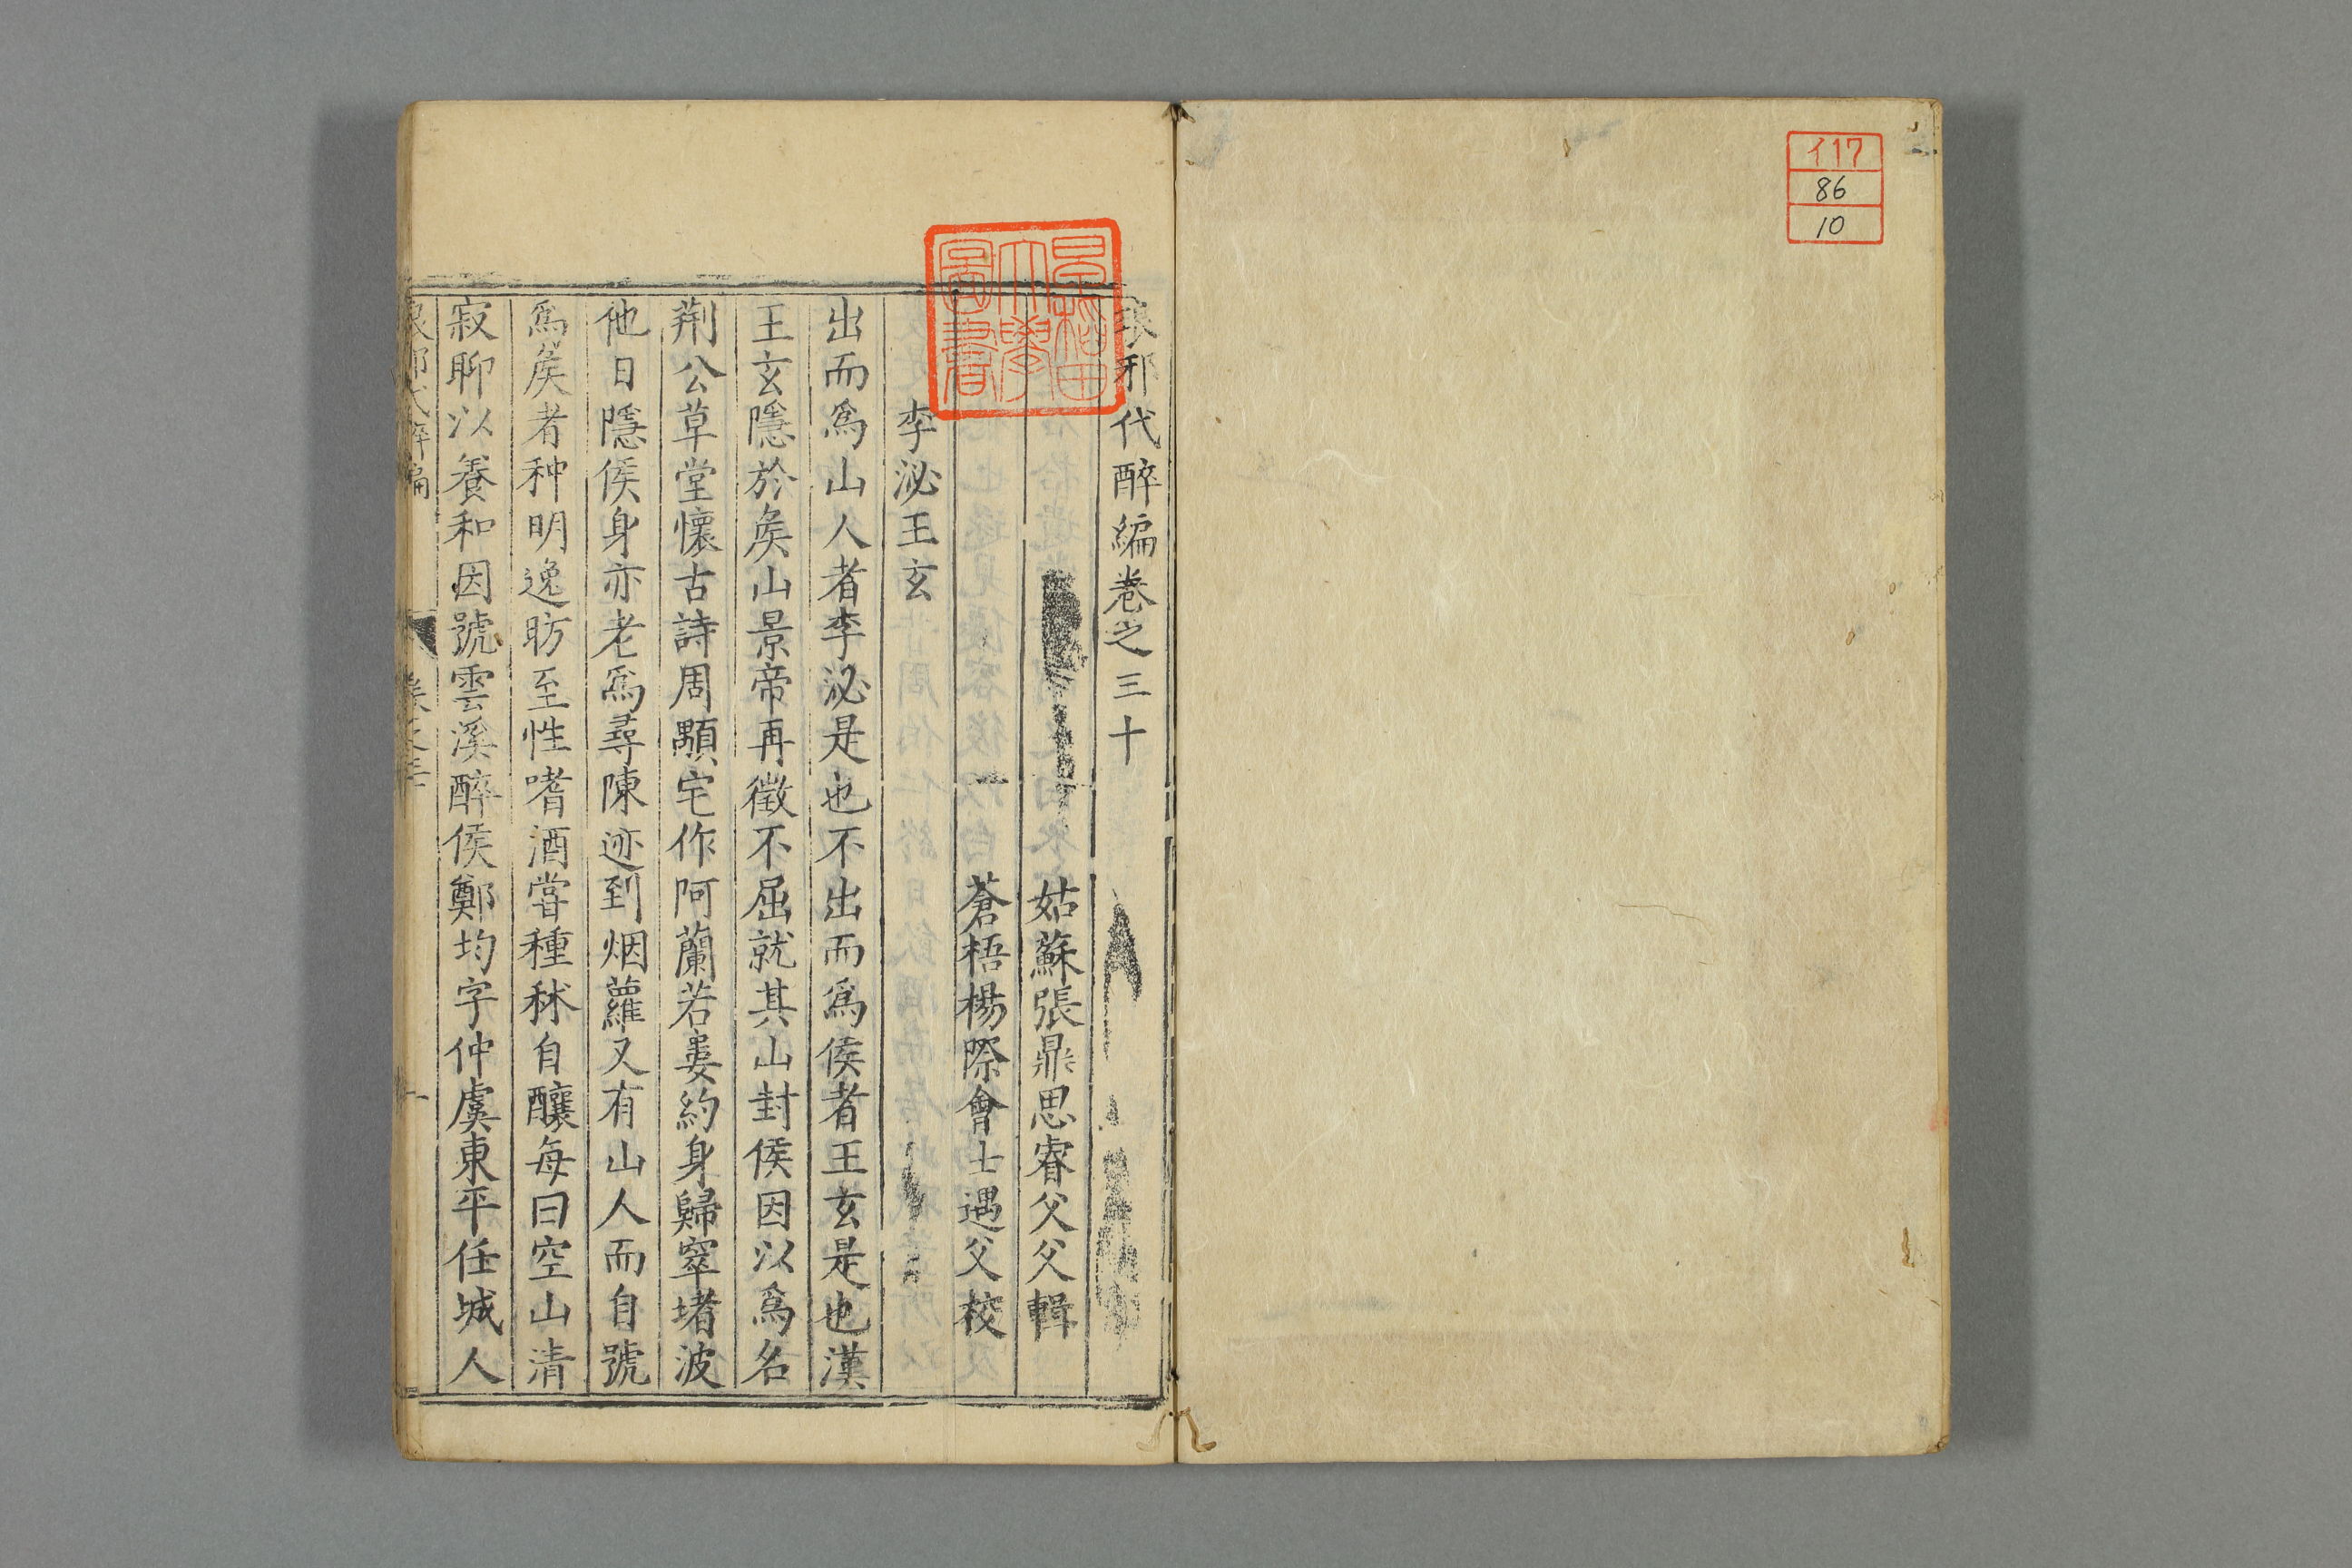 イ17
86
10
早稲田
大學
圖書
琅邪代醉編卷之三十
姑蘇張鼎思睿父父輯
蒼梧楊際會士遇父校
李泌王玄
出而爲山人者李泌是也不出而爲侯者王玄是也漢
王玄隱於矦山景帝再徵不屈就其山封侯因以爲名
荆公草堂懷古詩周顒宅作阿蘭若婁約身歸窣堵波
他日隱侯身亦老爲尋陳迹到烟蘿又有山人而自號
爲矦者种明逸昉至性嗜酒嘗種秫自釀每曰空山清
寂聊以養和因號雲溪醉侯鄭均字仲虞東平任城人